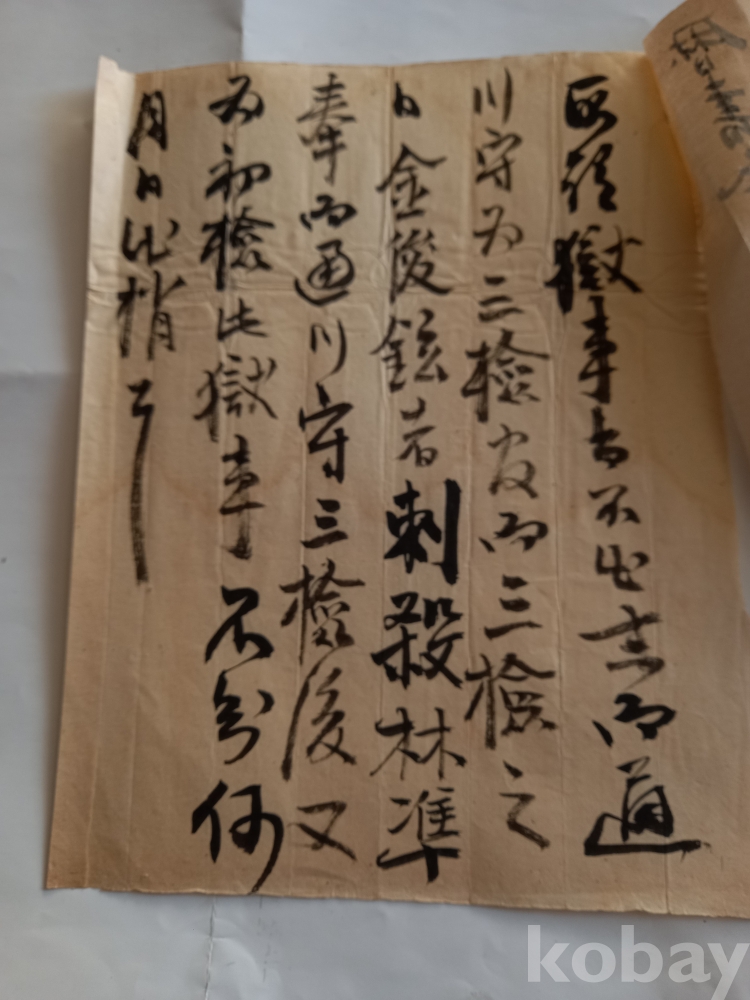 獄事去不出去而通
川守为三檢官而三檢之
日金俊鉉者刺殺林準
奉而通川守三檢後又
为初檢此獄事不知何
月日出梢了
kobay